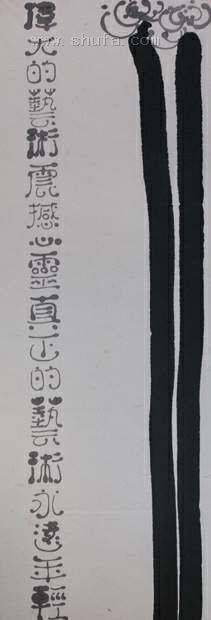 www.shufa.com
偉大的藝術震撼心靈真正的藝術永遠年輕